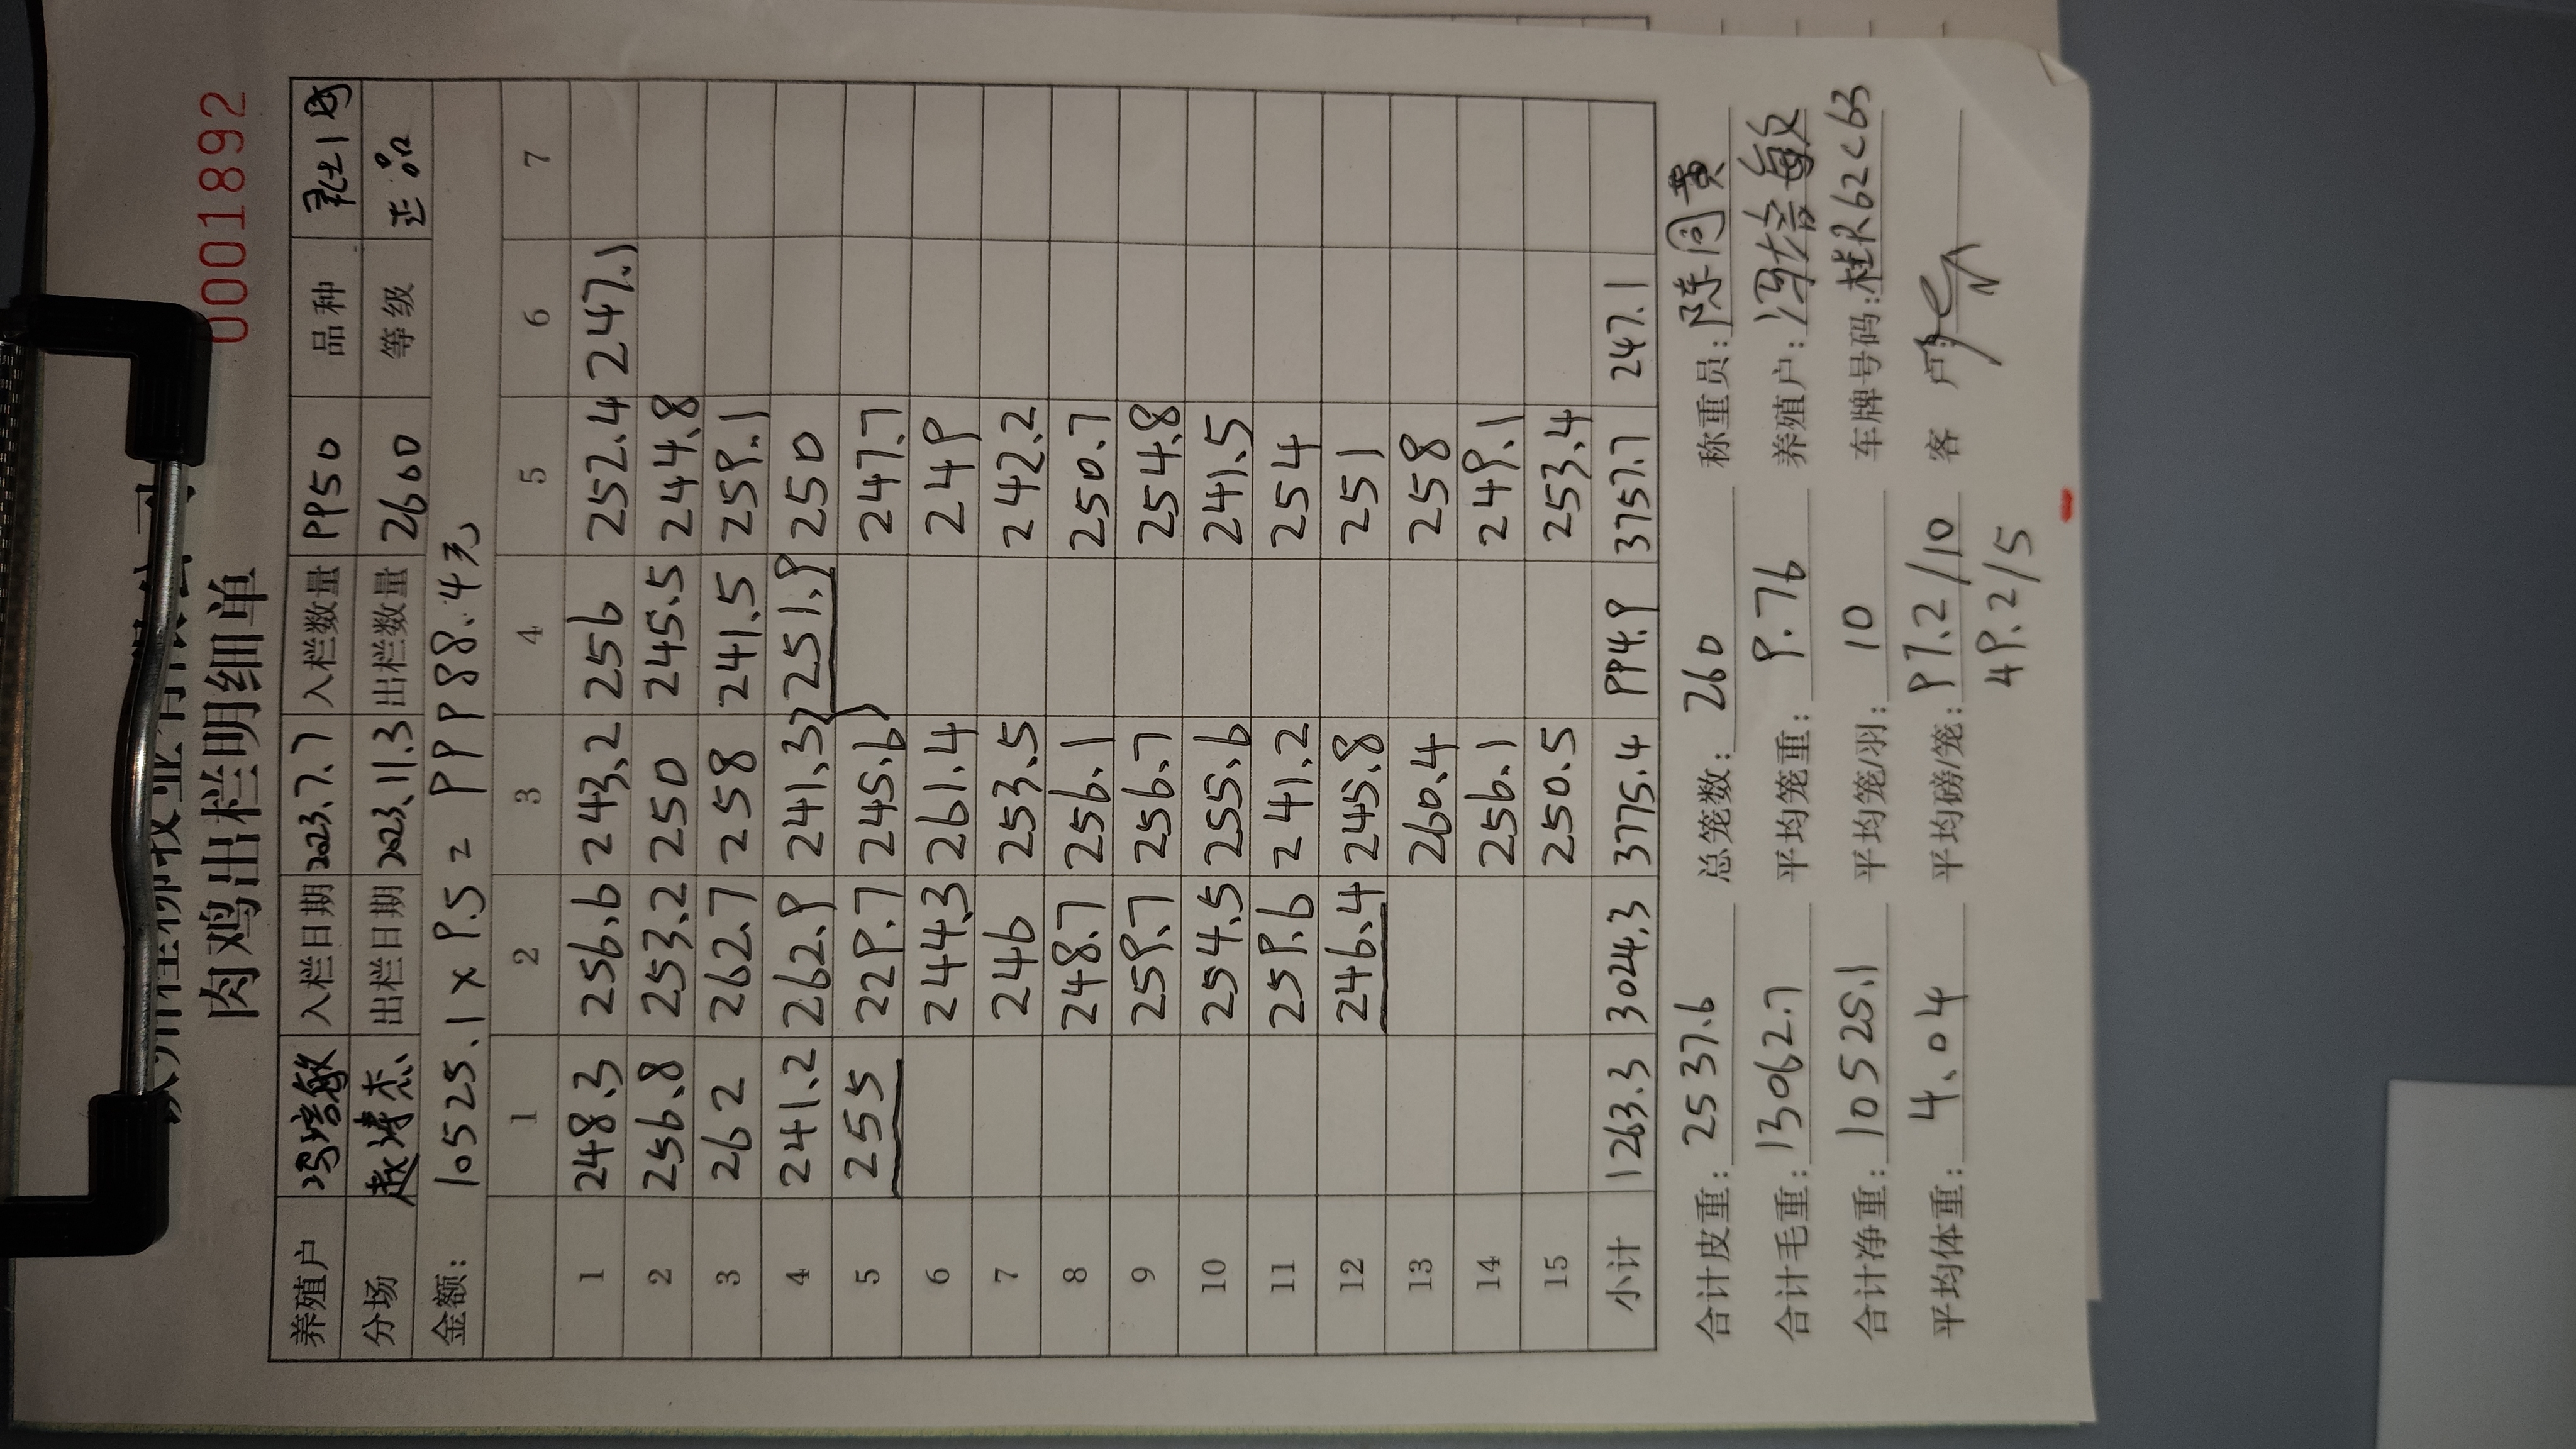 肉鸡出栏明细单
0001892
养殖户 冯培敏 入栏日期 2023.7.7 入栏数量 9950 品种
分场 出栏日期 2023.11.3 出栏数量 2600 等级 正品
金额: 10525.1 x 9.5 = 99988.4元
1 2 3 4 5 6 7
1 248.3 256.6 243.2 256 252.4 247.1
2 256.8 253.2 250 245.5 244.8
3 262 262.7 258 241.5 259.1
4 241.2 262.9 241.3 251.9 250
5 255 229.7 245.6 247.7
6 244.3 261.4 249
7 246 253.5 242.2
8 248.7 256.1 250.7
9 259.7 256.7 254.8
10 254.5 255.6 241.5
11 259.6 241.2 254
12 246.4 245.8 251
13 260.4 258
14 256.1 249.1
15 250.5 253.4
小计 1263.3 3024.3 3775.4 994.9 3757.7 247.1
合计皮重: 2537.6 总笼数: 260 称重员:
合计毛重: 13062.7 平均笼重: 9.76 养殖户: 冯培敏
合计净重: 10525.1 平均笼/羽: 10 车牌号码: 桂R62C63
平均体重: 4.04 平均磅/笼: 97.2/10 客 户:
49.2/5